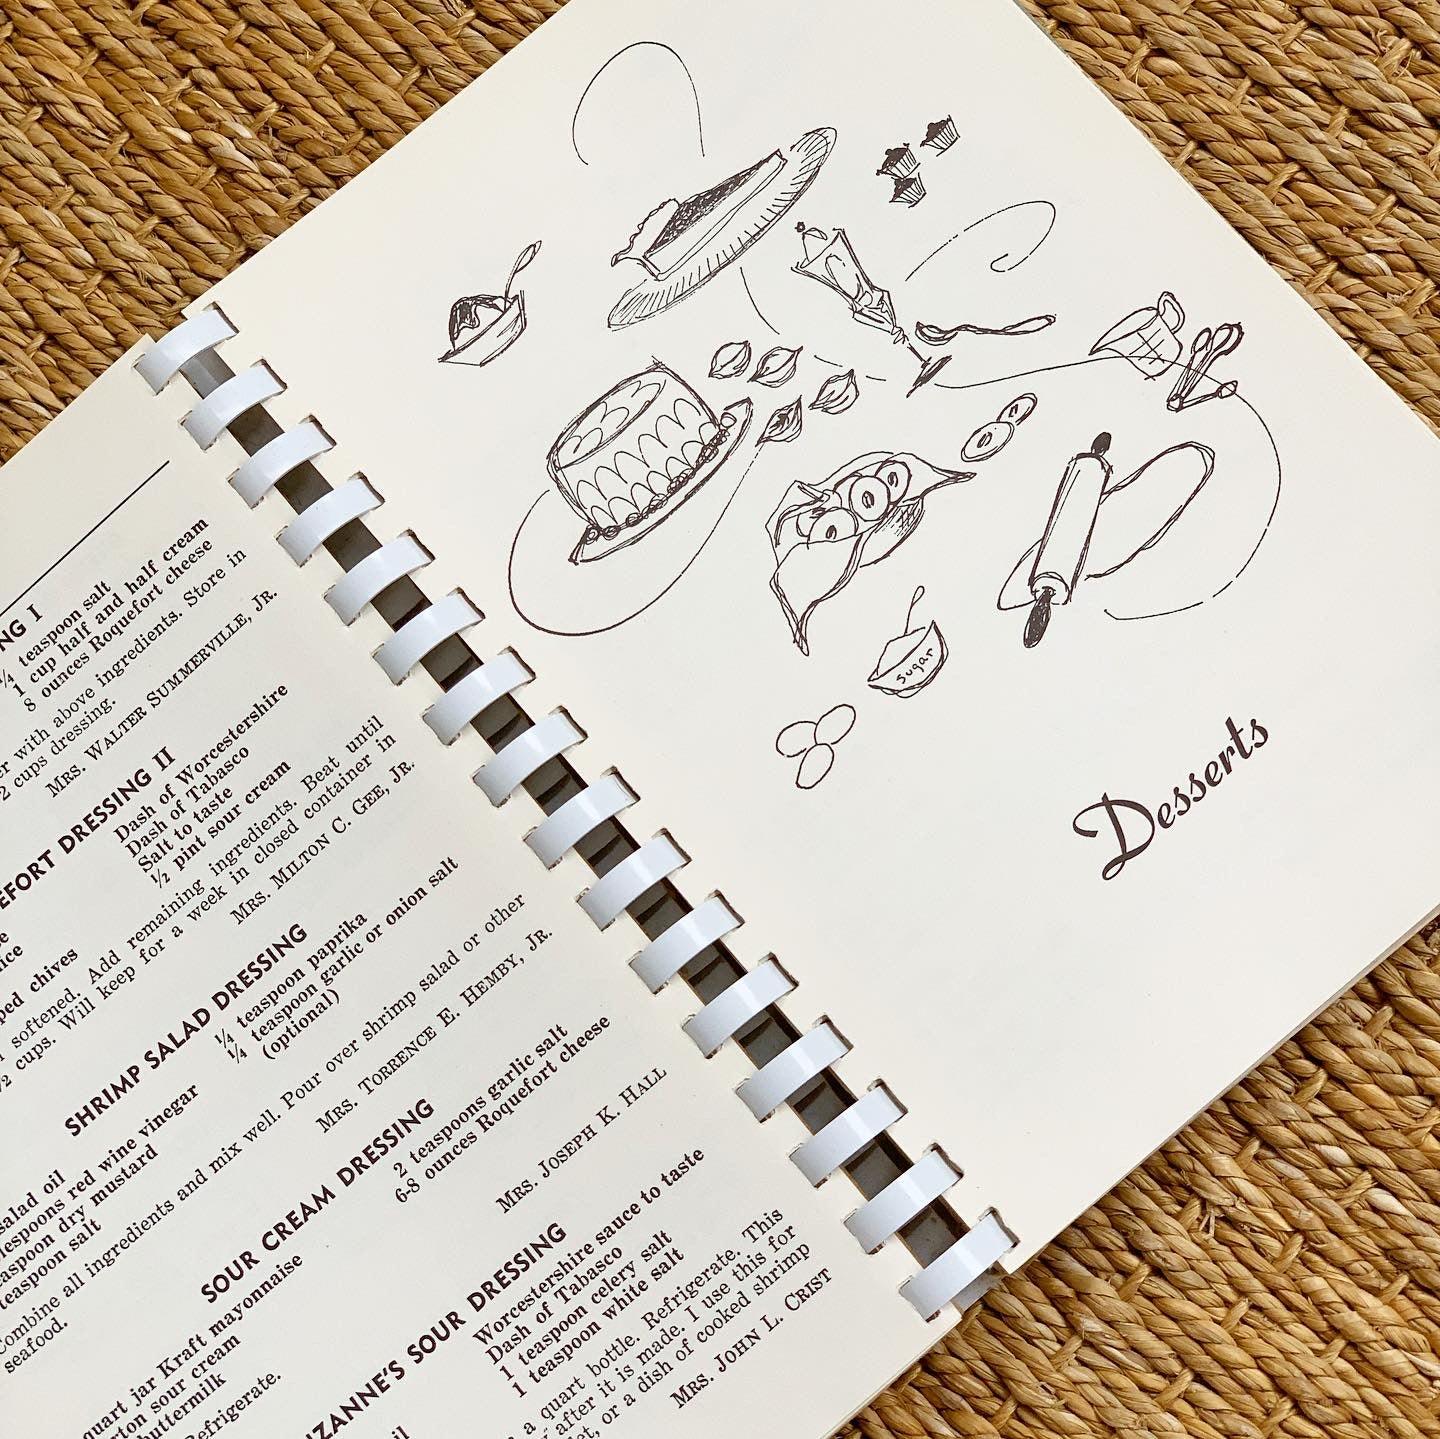 NG I
¼ teaspoon salt
1 cup half and half cream
8 ounces Roquefort cheese
with above ingredients. Store in
2 cups dressing.
MRS. WALTER SUMMERVILLE, JR.
EFORT DRESSING II
Dash of Worcestershire
Dash of Tabasco
Salt to taste
½ pint sour cream
ped chives
softened. Add remaining ingredients. Beat until
cups. Will keep for a week in closed container in
MRS. MILTON C. GEE, JR.
SHRIMP SALAD DRESSING
salad oil
lespoons red wine vinegar
easpoon dry mustard
teaspoon salt
¼ teaspoon paprika
¼ teaspoon garlic or onion salt
(optional)
Combine all ingredients and mix well. Pour over shrimp salad or other
seafood.
MRS. TORRENCE E. HEMBY, JR.
SOUR CREAM DRESSING
quart jar Kraft mayonnaise
rton sour cream
buttermilk
2 teaspoons garlic salt
6-8 ounces Roquefort cheese
Refrigerate.
MRS. JOSEPH K. HALL
UZANNE'S SOUR DRESSING
Worcestershire sauce to taste
Dash of Tabasco
1 teaspoon celery salt
1 teaspoon white salt
a quart bottle. Refrigerate. This
after it is made. I use this for
or a dish of cooked shrimp
MRS. JOHN L. CRIST
sugar
Desserts